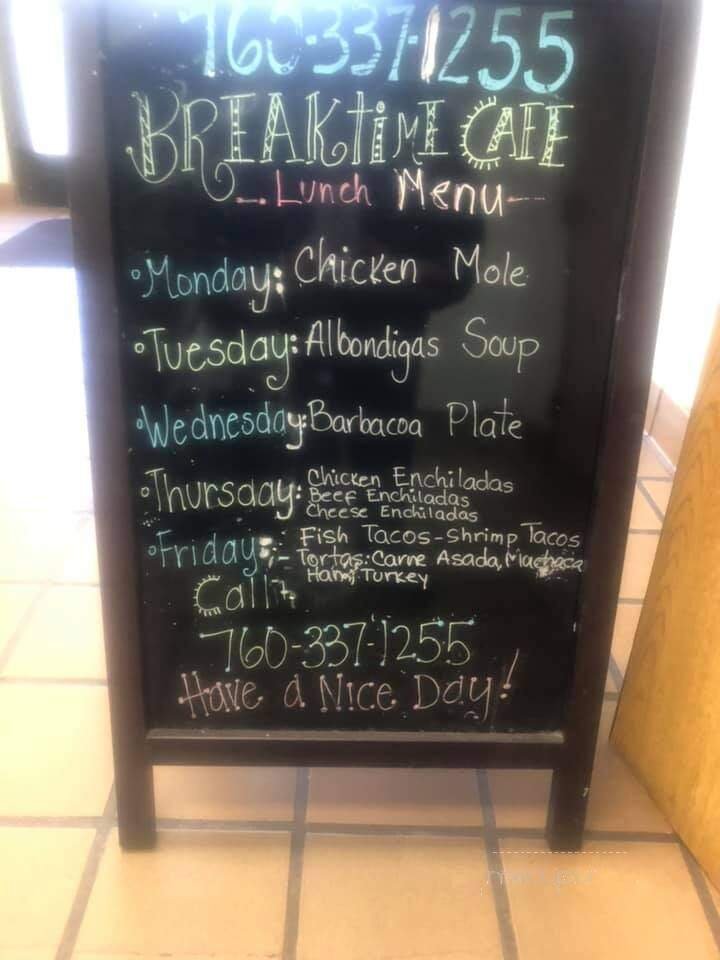 760-337-1255
BREAKtiME CAFE
Lunch Menu
Monday: Chicken Mole
Tuesday: Albondigas Soup
Wednesday: Barbacoa Plate
Thursday: Chicken Enchiladas
Beef Enchiladas
Cheese Enchiladas
Friday: Fish Tacos - Shrimp Tacos
Tortas: Carne Asada, Machaca
Ham, Turkey
Call:
760-337-1255
Have a Nice Day!